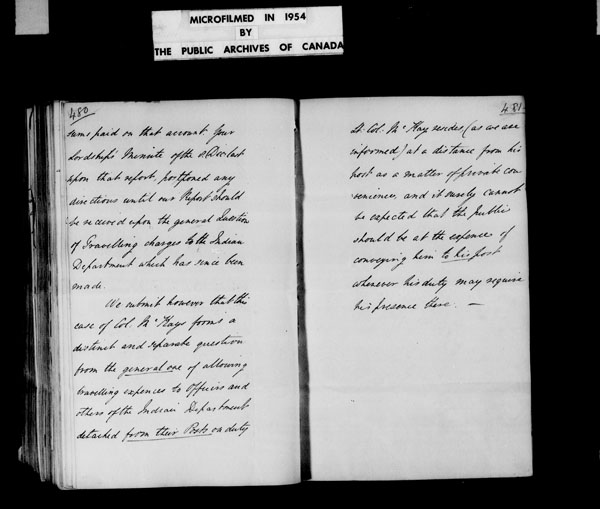 MICROFILMED IN 1954
BY
THE PUBLIC ARCHIVES OF CANADA
480
sums paid on that account Your
Lordship's Minute of the 8 Dec last
upon that report postponed any
directions until our Report should
be received upon the general Question
of Travelling charges to the Indian
Department which has since been
made.
We submit however that this
case of Col. Mc Kays forms a
distinct and separate question
from the general one of allowing
travelling expences to Officers and
others of the Indian Department
detached from their Posts on duty
481
Lt. Col. Mc Kay resides (as we are
informed) at a distance from his
post as a matter of private con
venience, and it surely cannot
be expected that the public
should be at the expence of
conveying him to his post
whenever his duty may require
his presence there. —